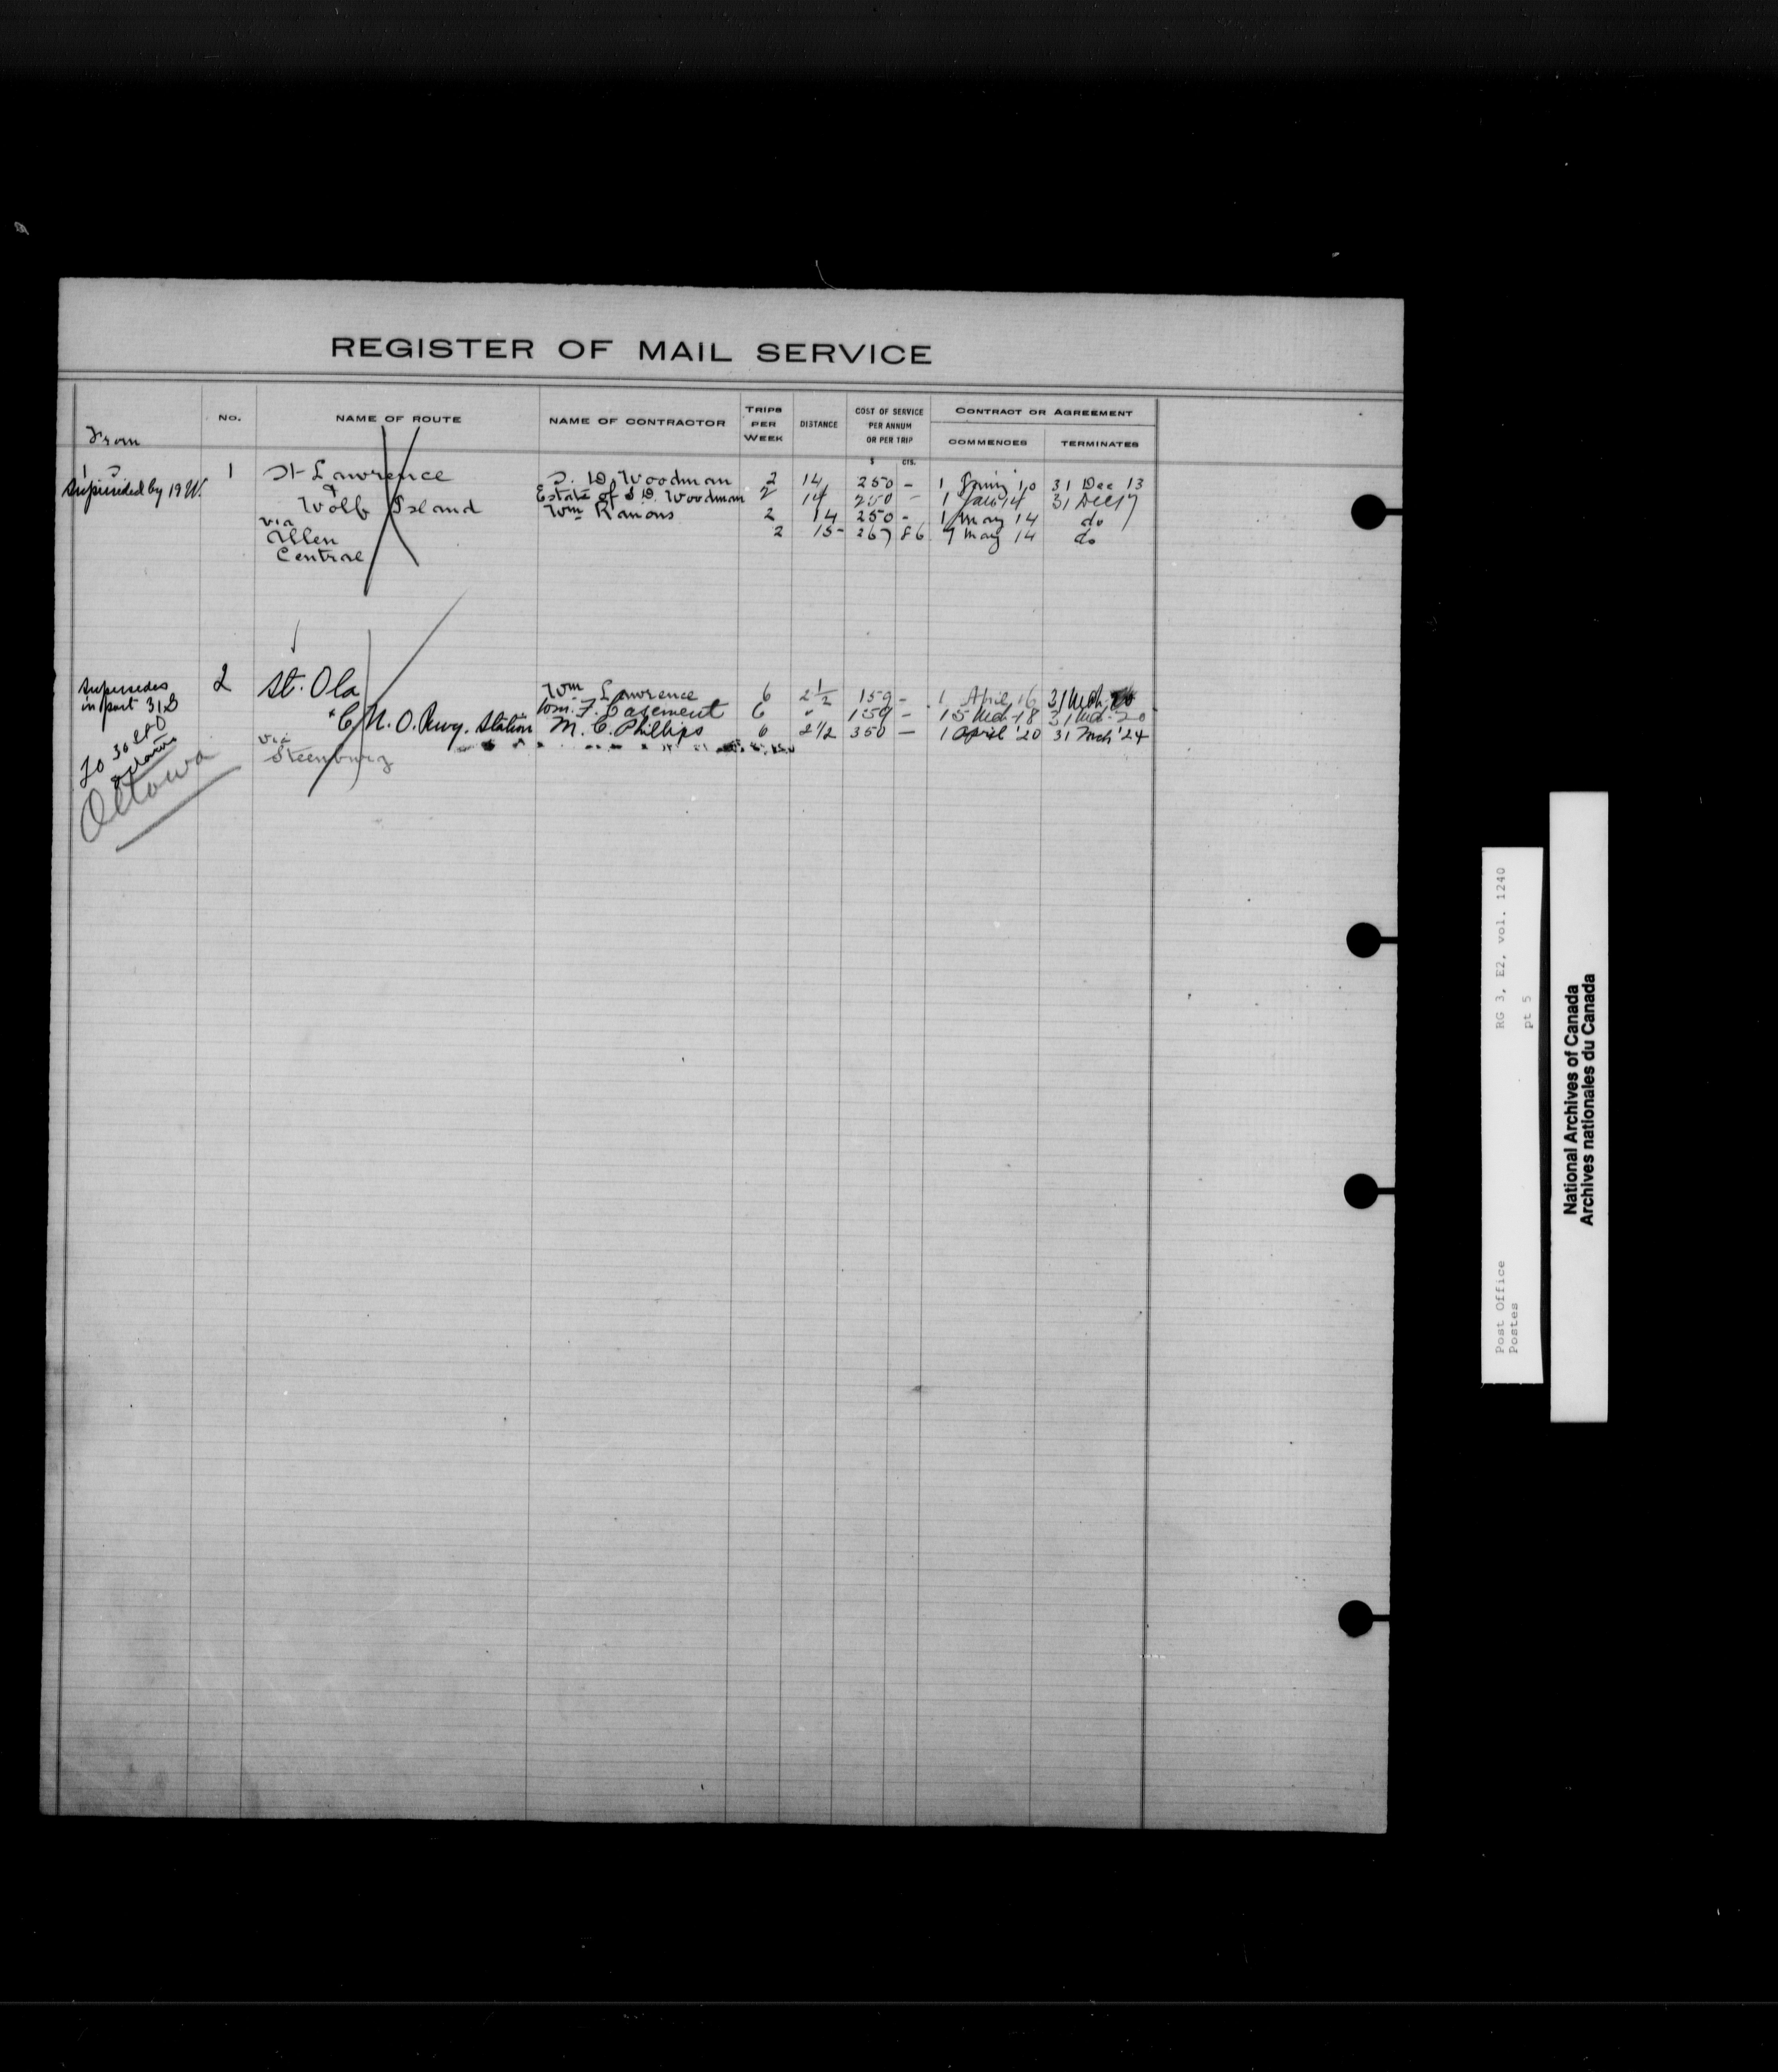 REGISTER OF MAIL SERVICE
From
No.
NAME OF ROUTE
NAME OF CONTRACTOR
TRIPS PER WEEK
DISTANCE
COST OF SERVICE PER ANNUM OR PER TRIP
$ CTS.
CONTRACT OR AGREEMENT
COMMENCES
TERMINATES
Superseded by 19 W. 1 St Lawrence S. D. Woodman 2 14 250 - 1 10 31 Dec 13
& Estate of S D. Woodman 2 14 250 - 1 Jan 14 31 Dec 17
Wolfe Island Wm 2 14 250 - 1 May 14 do
via
Allen 2 15 - 267 86 9 May 14 do
Central
Supersedes 2 St. Ola Wm Lawrence 6 2 1/2 159 - 1 April 16 31 Mch 20
in part 31 Wm. F. Casement 6 " 159 - 15 Mch 18 31 Mch 20
& C. N. O. Rwy. Station M. C. Phillips 6 2 1/2 350 — 1 April '20 31 Mch '24
via
Steenburg
To
Ottawa
RG 3, E2, vol. 1240
pt 5
Post Office
Postes
National Archives of Canada
Archives nationales du Canada